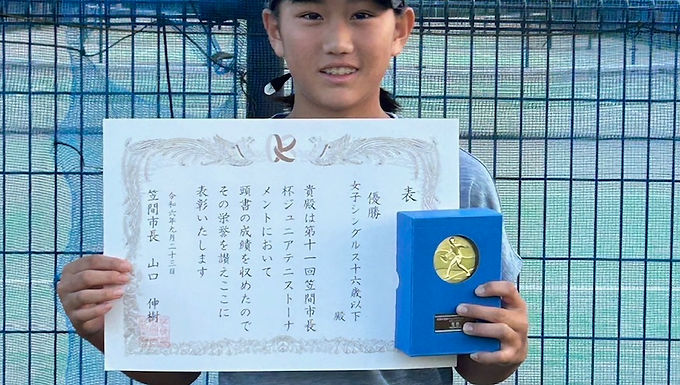 表
優勝
女子シングルス十六歳以下
殿
貴殿は第十一回笠間市長
杯ジュニアテニストーナ
メントにおいて
頭書の成績を収めたので
その栄誉を讃えここに
表彰いたします
令和六年九月二十三日
笠間市長 山口 伸樹